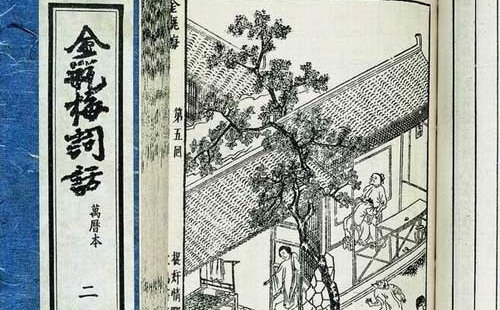 金瓶梅詞話
萬曆本
二
金瓶梅
第五回
捉奸情